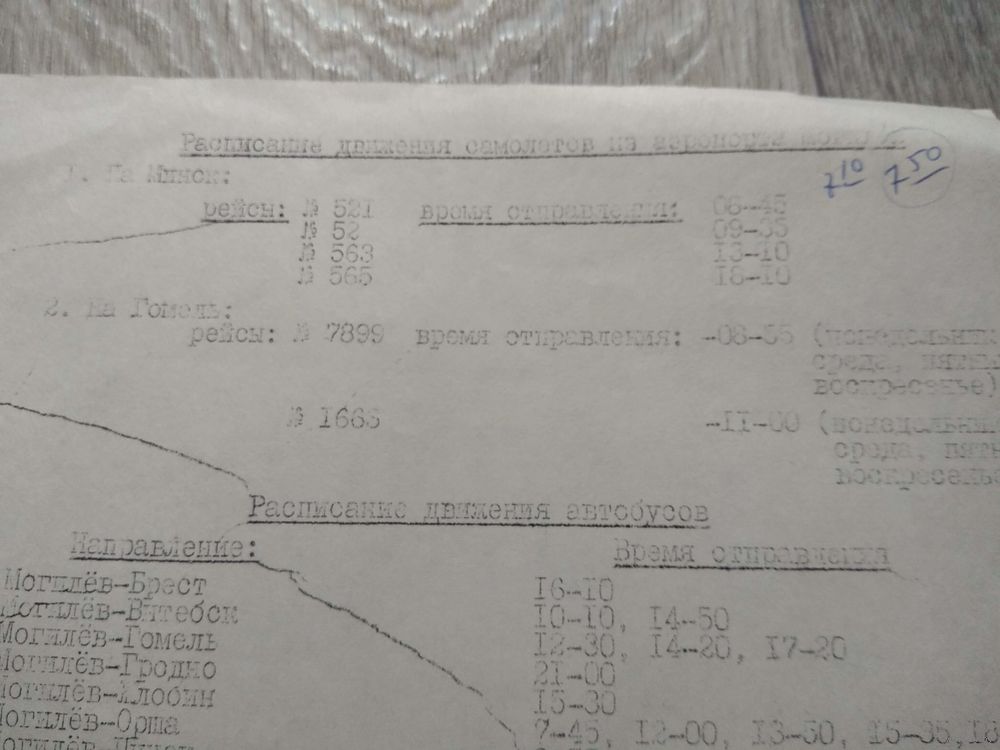 Расписание движения самолетов из аэропорта
7 10 7 50
1. На Минск:
рейсы: № 521 время отправления: 08-45
№ 52 09-35
№ 563 13-10
№ 565 18-10
2. На Гомель:
рейсы: № 7899 время отправления: -08-55 (понедельник
среда, пятни
воскресенье)
№ 1666 -11-00 (понедельник
среда, пятн
воскресенье
Расписание движения автобусов
Направление: Время отправления
Могилёв-Брест 16-10
Могилёв-Витебск 10-10, 14-50
Могилёв-Гомель 12-30, 14-20, 17-20
Могилёв-Гродно 21-00
Могилёв-Жлобин 15-30
Могилёв-Орша 7-45, 12-00, 13-50, 15-35, 18